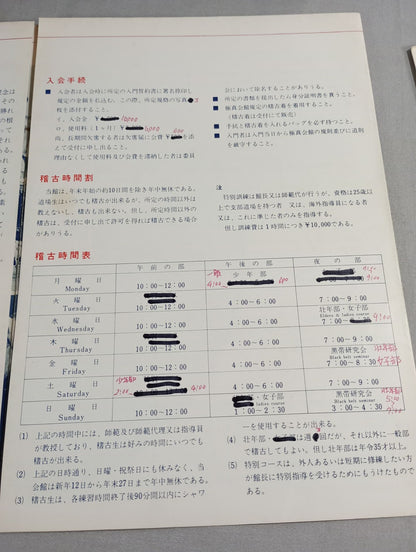 入会手続
■ 入会者は入会時に所定の入門誓約書に署名捺印し
規定の金額を右込む。この際、所定規格の写真 3
枚を添付すること。
イ、入会金 ¥ 10000
ロ、使用料(1ヶ月) ¥ 5000
尚、長期間欠席する者は欠席届に会費 ¥ 500 を添
えて受付に申し出ること。
理由なくして使用料及び会費を滞納した者は委員
会において除名することがありうる。
■ 所定の書類を提出したら身分証明書を貰うこと。
■ 極真会館規定の稽古着を着用すること。
(稽古着は受付にて販売)
■ 手拭と稽古着を入れるバッグを必ず持つこと。
■ 入門者は入門当日から極真会館の規則並びに道則
を厳守すること。
稽古時間割
当館は、年末年始の約10日間を除き年中無休である。
道場生はいつでも稽古が出来るが、所定の時間以外は
教えないし、稽古も出来ない。但し、所定の時間以外の
稽古は、受付に申し出て許可を得れば稽古できる場合
がありうる。
注
特別訓練は館長又は師範代が行うが、資格は25歳以
上で支部道場を持つ者 又は、海外指導員になる者
又は、これに準じた者のみを指導する。
但し訓練費は1時間につき¥10,000である。
稽古時間表
午前の部 午後の部 夜の部
月曜日 Monday 10:00~12:00 一般 4:00~ 少年部 6:00 9:00
火曜日 Tuesday 10:00~12:00 4:00~6:00 7:00~9:00
水曜日 Wednesday 10:00~12:00 4:00~6:00 壮年部・女子部 Elders & ladies course 7:00 9:00
木曜日 Thursday 10:00~12:00 4:00~6:00 7:00~9:00
金曜日 Friday 10:00~12:00 4:00~6:00 黒帯研究会 Black belt seminar 7:00~8:30 壮年部 女子部
土曜日 Saturday 少年部 2:00 4:00 4:00~6:00 7:00~9:00
日曜日 Sunday 10:00~12:00 ・女子部 ladies course 1:00~2:30 黒帯研究会 Black belt seminar 3:00~4:30 壮年部
(1) 上記の時間中には、師範及び師範代理又は指導員
が教授しており、稽古生は好みの時間にいつでも
稽古が出来る。
(2) 上記の日時通り、日曜・祝祭日にも休みなく、当
会館は新年12日から年末27日まで年中無休である。
(3) 稽古生は、各練習時間終了後90分間以内にシャワ
ーを使用することが出来る。
(4) 壮年部・ は週 回だが、それ以外に一般部
で稽古してもよい。但し壮年部は年令35才以上。
(5) 特別コースは、外人あるいは短期に修練したい方
が館長に特別指導を受けるためにもうけたもので
ある。